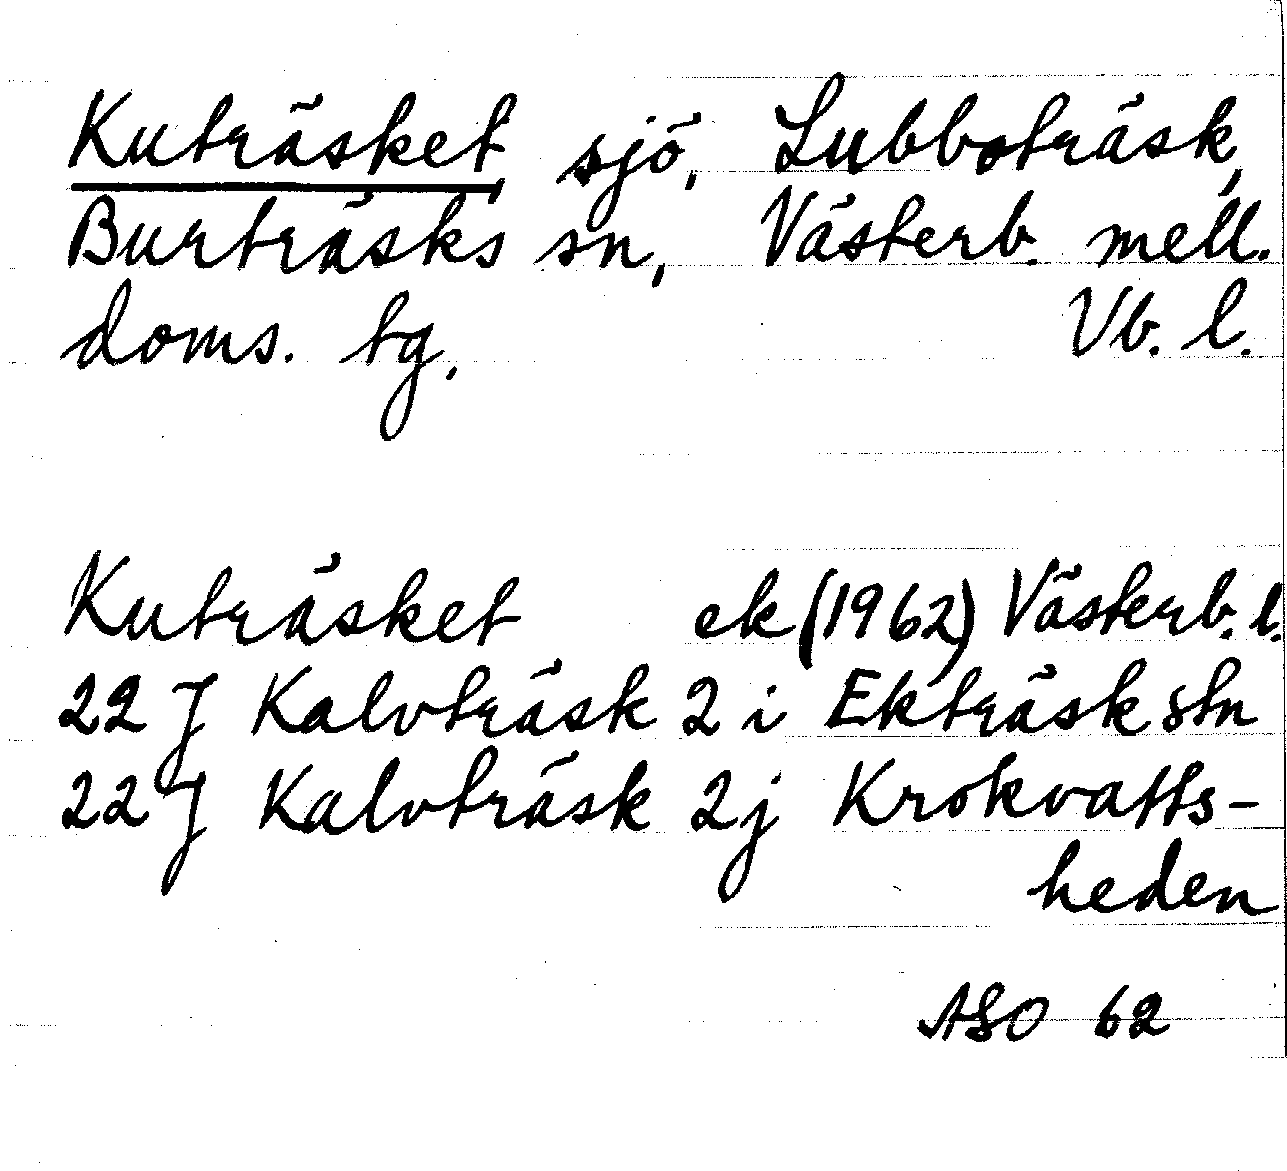 Kuträsket, sjö, Lubboträsk,
Burträsks sn, Västerb. mell.
doms. tg, Vb. l.
Kuträsket ek (1962) Västerb. l.
22 J Kalvträsk 2 i Ekträsk stn
22 J Kalvträsk 2 j Krokvatts-
heden
ASO 62